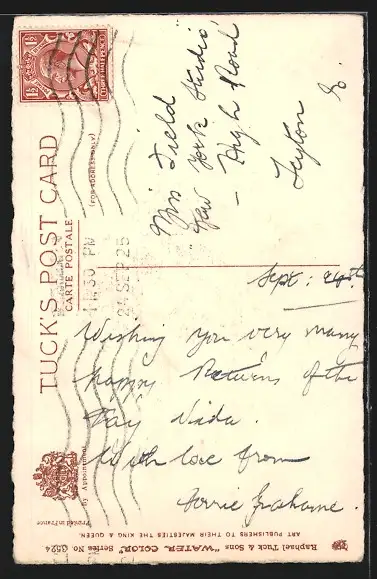 TUCK'S POST CARD
CARTE POSTALE
(FOR ADDRESS ONLY)
1½ 1½
THREE HALFPENCE
11.30 PM
24 SEP 25
Miss Field
"New York Studio"
High Road
Leyton E.
Sept: 24th
Wishing you very many
happy Returns of the
Day Nida.
With love from
Grahame.
By Appointment
Printed in France
Raphael Tuck & Sons "WATER COLOR" Series No 3524
ART PUBLISHERS TO THEIR MAJESTIES THE KING & QUEEN.